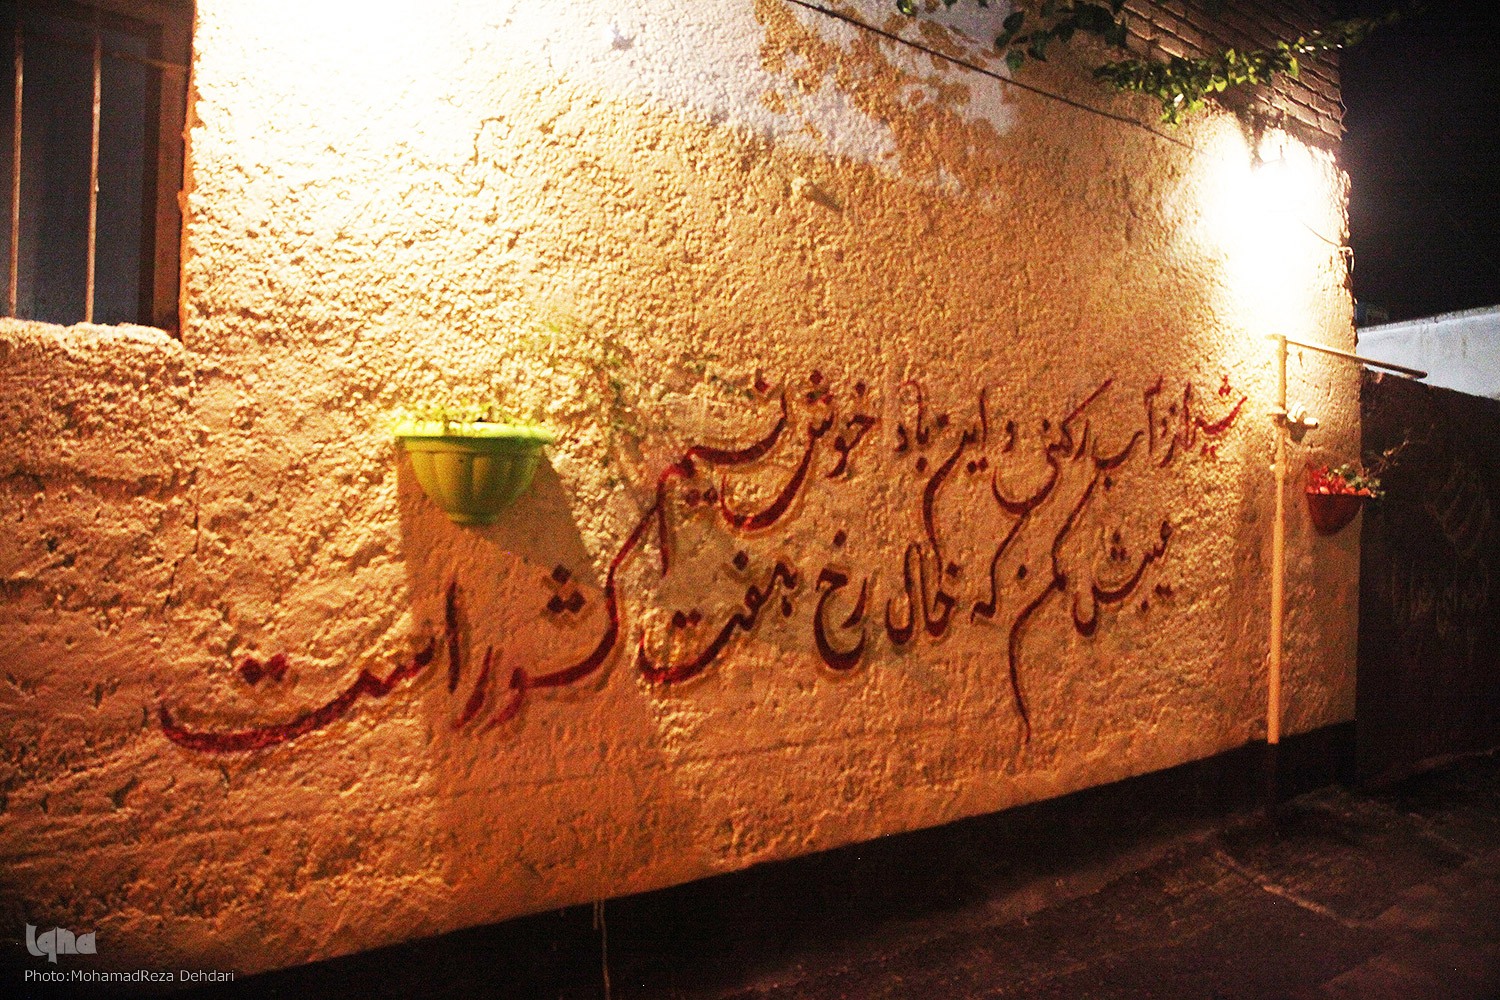 شیراز و آب رکنی و این باد خوش نسیم
عیبش مکن که خال رخ هفت کشور است
Iqna
Photo:MohamadReza Dehdari